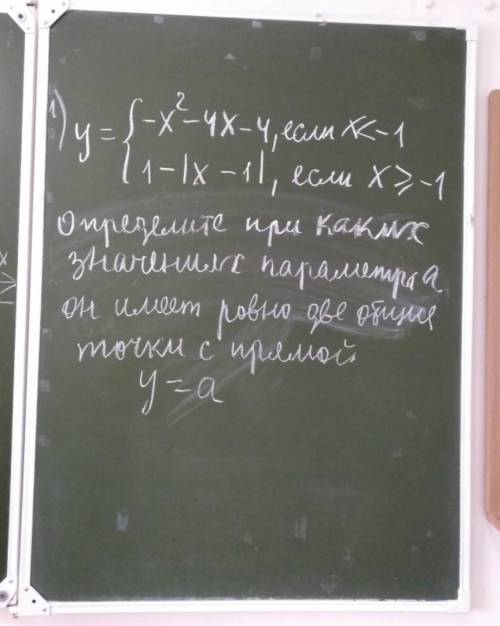 1) y = { -x² - 4x - 4, если x < -1
1 - |x - 1|, если x ⩾ -1
Определите при каких
значениях параметра a
он имеет ровно две общие
точки с прямой
y = a